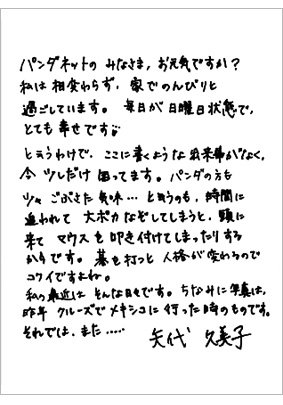 パンダネットの みなさま、お元気ですか？
私は 相変わらず、家でのんびりと
過ごしています。 毎日が 日曜日状態で、
とても 幸せです♡
と云うわけで、ここに書くような 出来事がなく、
今 少しだけ 困ってます。パンダの方も
少々 ごぶさた 気味… と云うのも、時間に
追われて 大ポカなぞしてしまうと、頭に
来て マウスを 叩き付けてしまったりする
からです。 碁を打つと 人格が変わるので
コワイですよね。
私の最近は そんな日々です。ちなみに写真は、
昨年 クルーズで メキシコに 行った時のものです。
それでは、また.....
矢代 久美子